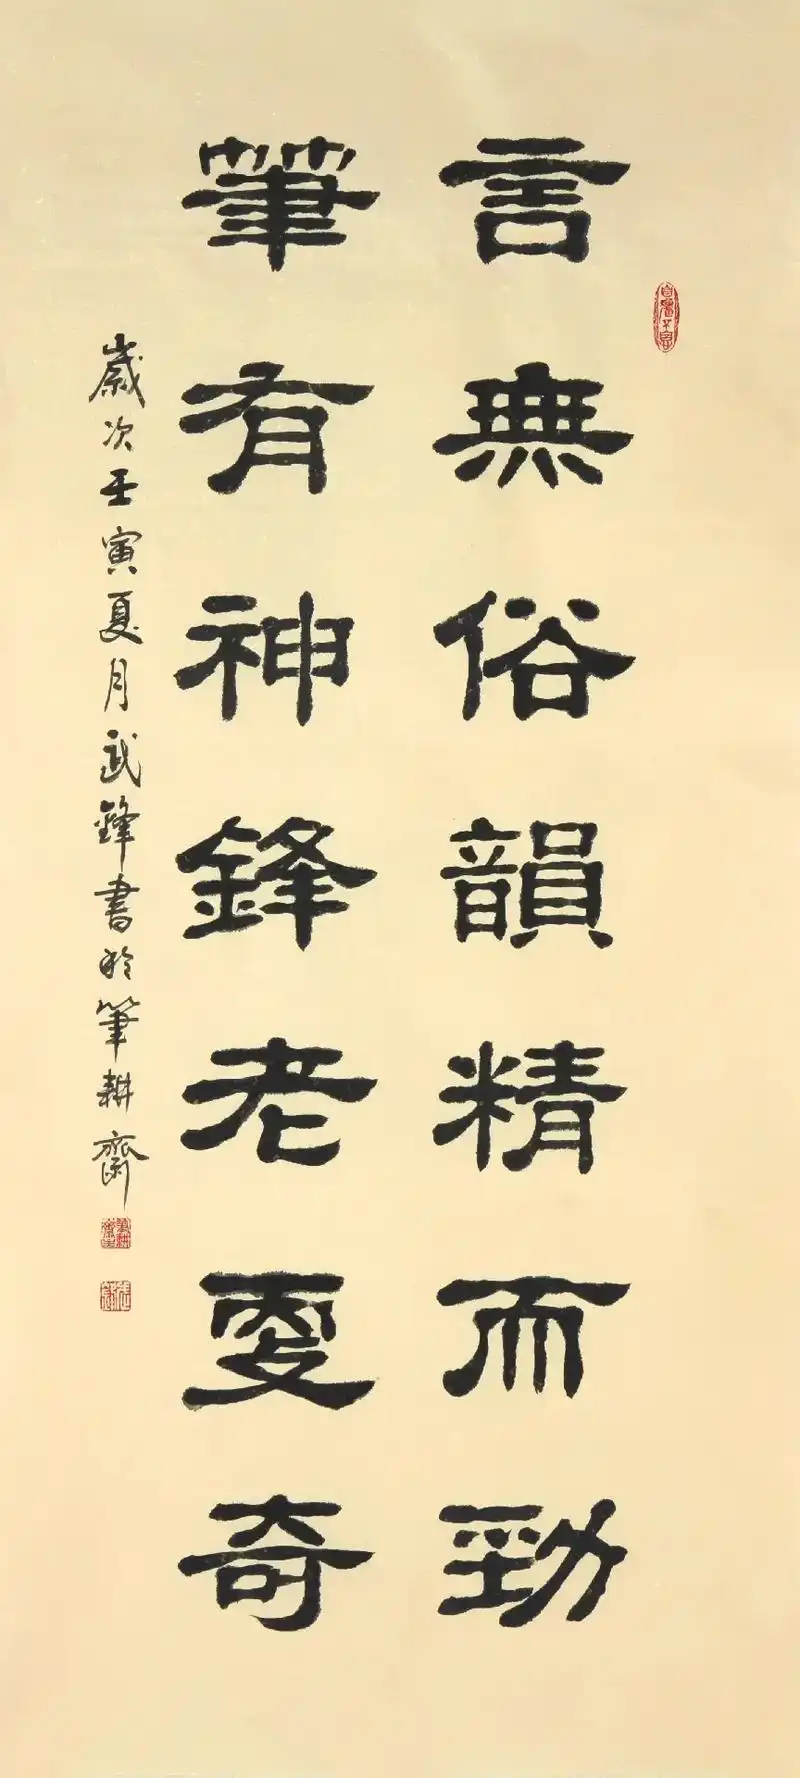 言無俗韻精而勁
筆有神鋒老更奇
歲次壬寅夏月武鋒書於筆耕齋